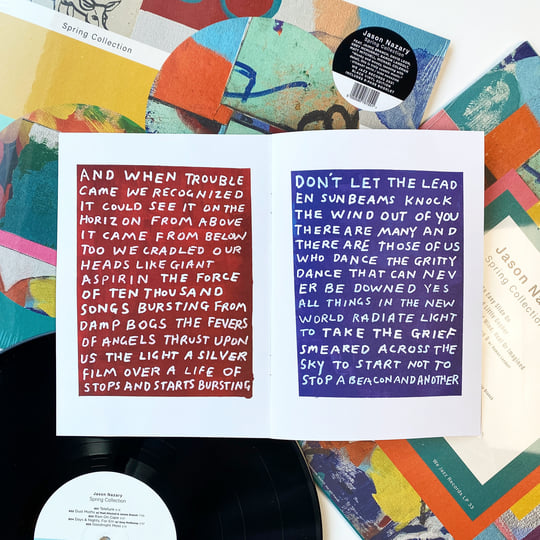 Spring Collection
Jason Nazary
Spring Collection
AND WHEN TROUBLE
CAME WE RECOGNIZED
IT COULD SEE IT ON THE
HORIZON FROM ABOVE
IT CAME FROM BELOW
TOO WE CRADLED OUR
HEADS LIKE GIANT
ASPIRIN THE FORCE
OF TEN THOUSAND
SONGS BURSTING FROM
DAMP BOGS THE FEVERS
OF ANGELS THRUST UPON
US THE LIGHT A SILVER
FILM OVER A LIFE OF
STOPS AND STARTS BURSTING
DON'T LET THE LEAD
EN SUNBEAMS KNOCK
THE WIND OUT OF YOU
THERE ARE MANY AND
THERE ARE THOSE OF US
WHO DANCE THE GRITTY
DANCE THAT CAN NEV
ER BE DOWNED YES
ALL THINGS IN THE NEW
WORLD RADIATE LIGHT
TO TAKE THE GRIEF
SMEARED ACROSS THE
SKY TO START NOT TO
STOP A BEACON AND ANOTHER
Jason Nazary
Spring Collection
We Jazz Records LP 33
Jason Nazary
Spring Collection